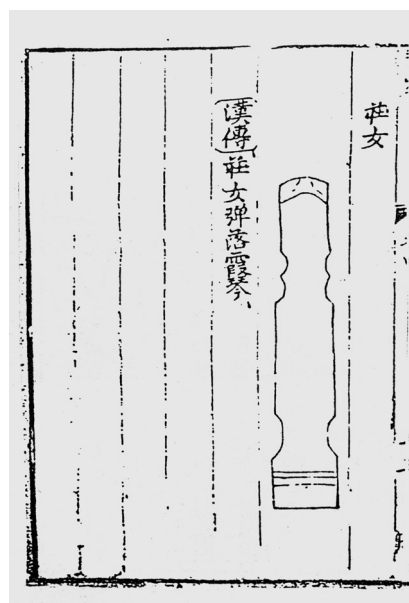 莊女
漢傳莊女弹落霞琴